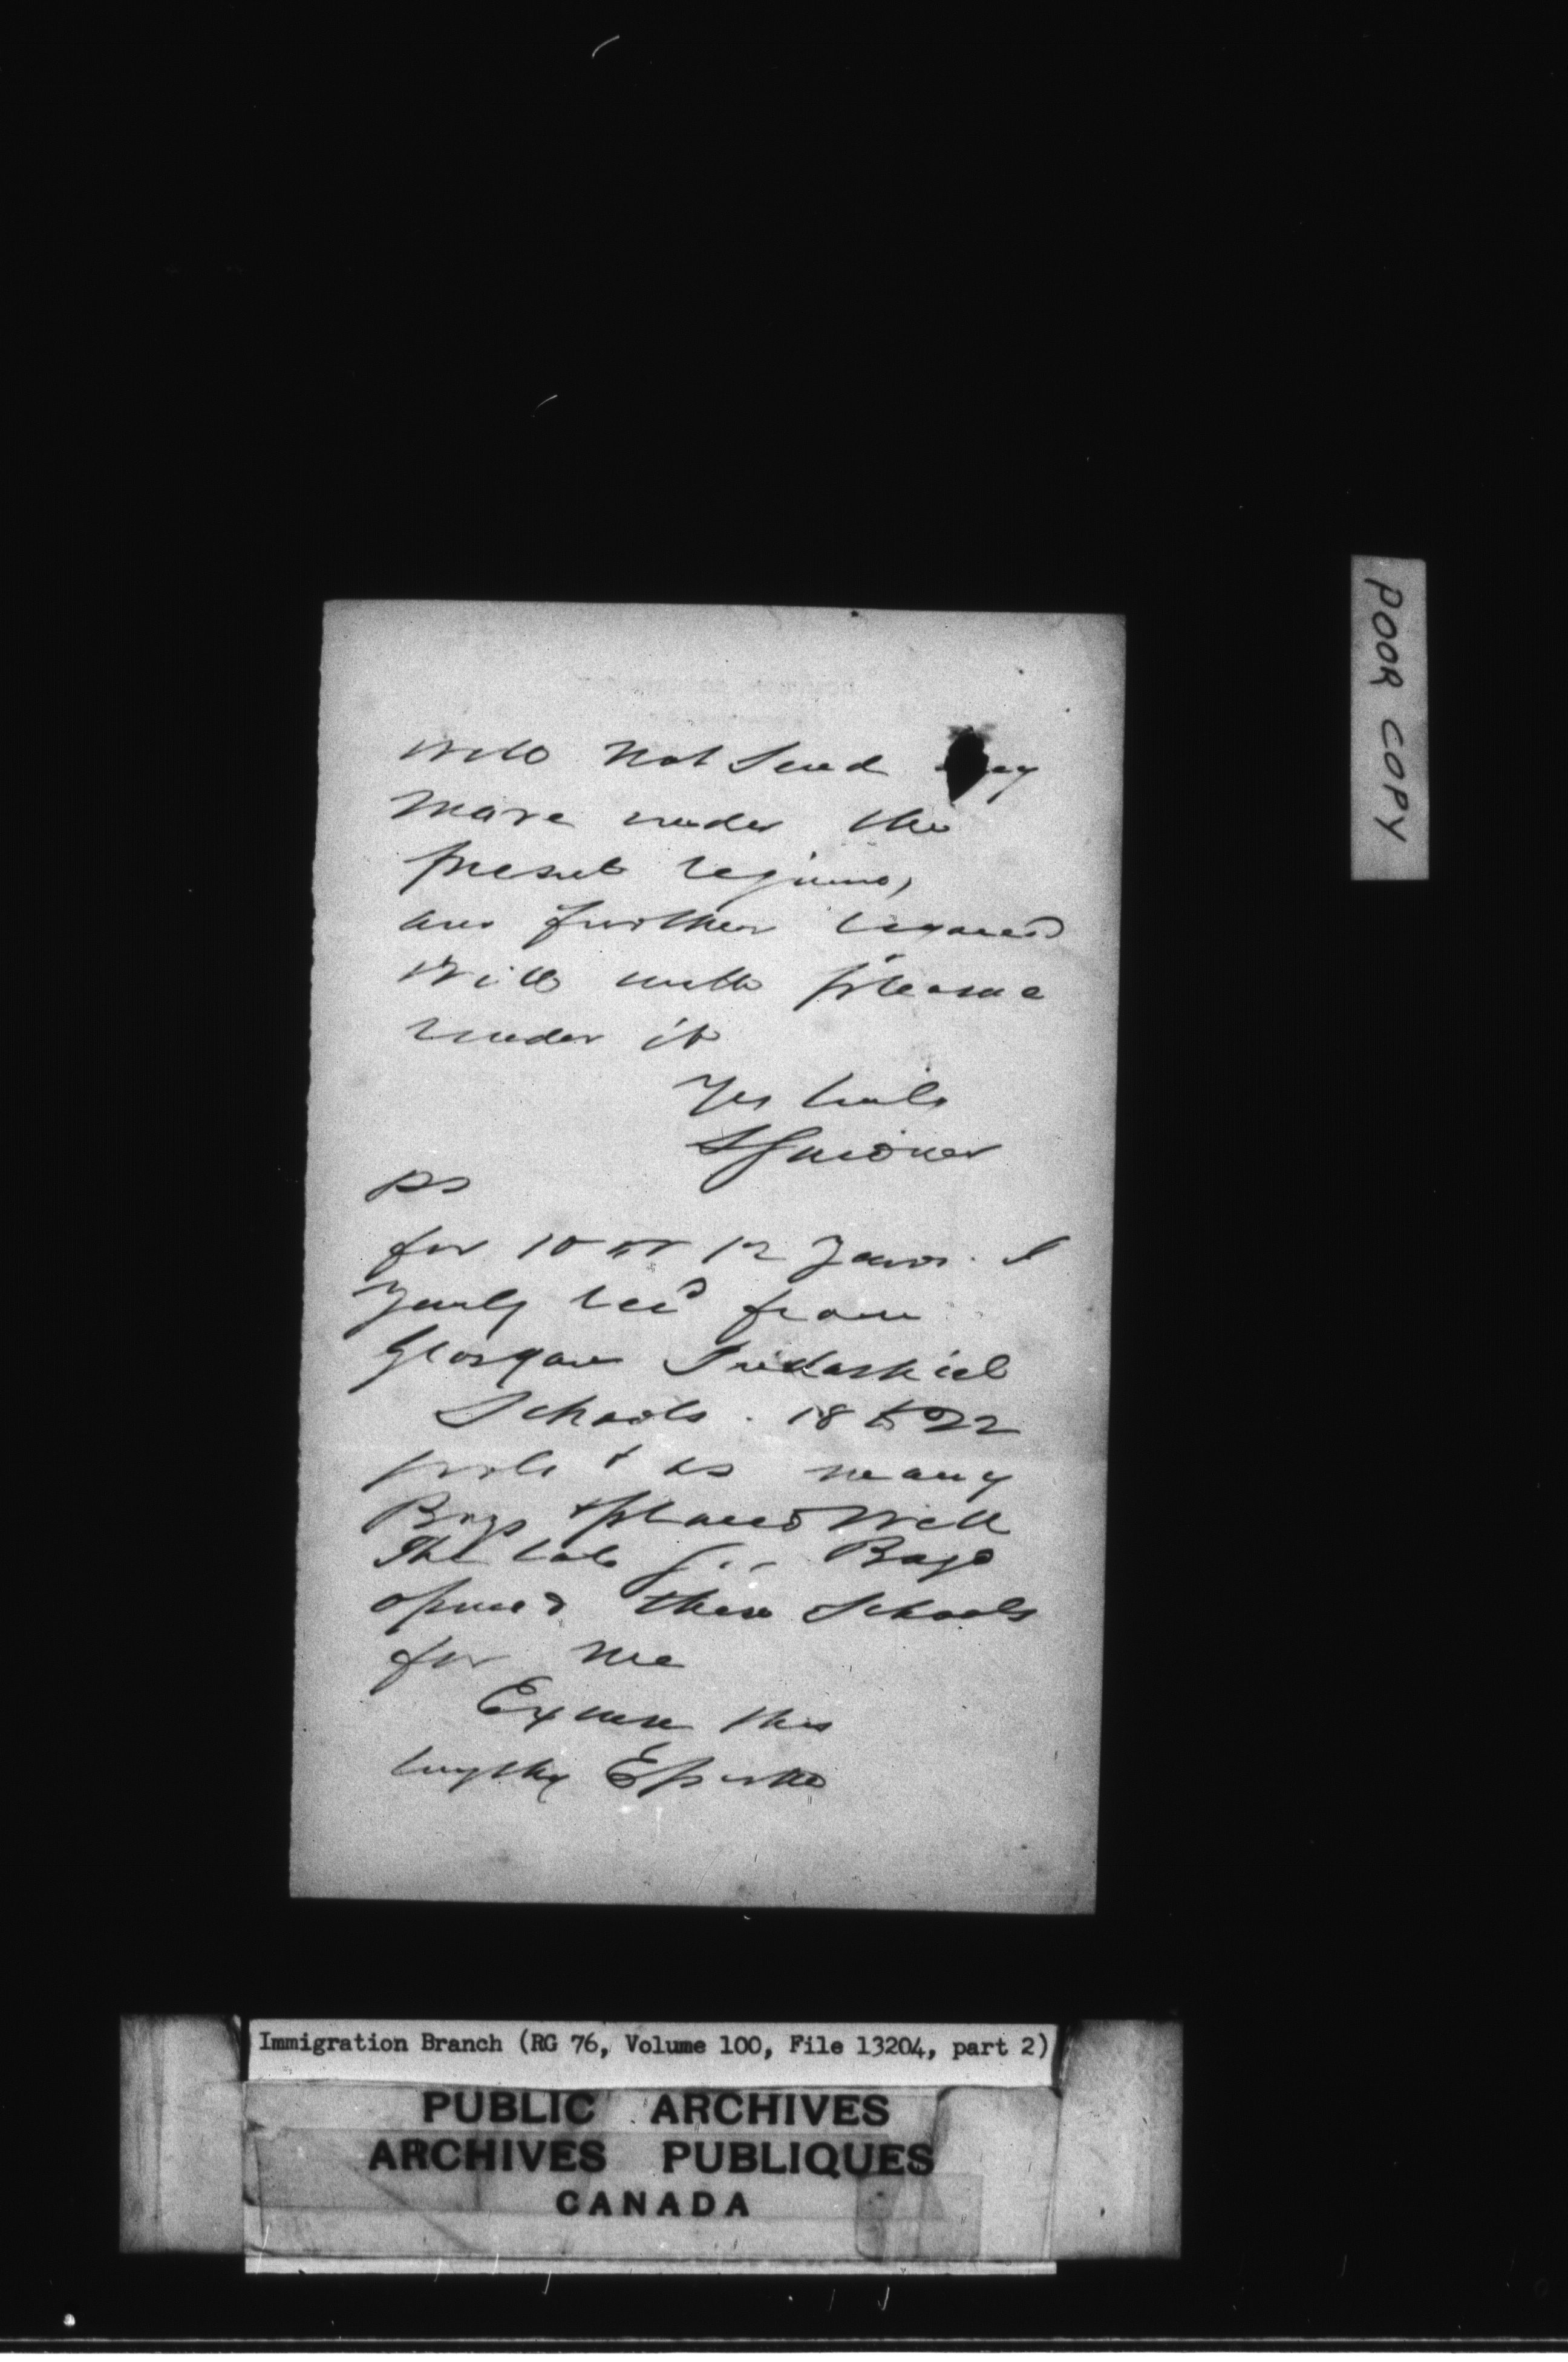 will not send any
more under the
present regime,
any further required
will with pleasure
render it
Yrs truly
ps
for 10 or 12 Years. I
Yearly recd from
Glasgow Industrial
Schools. 18 to 22
girls & as many
Boys & placed well
The late Boys
opened these Schools
for me
Excuse this
lengthy Epistle
POOR COPY
Immigration Branch (RG 76, Volume 100, File 13204, part 2)
PUBLIC ARCHIVES
ARCHIVES PUBLIQUES
CANADA